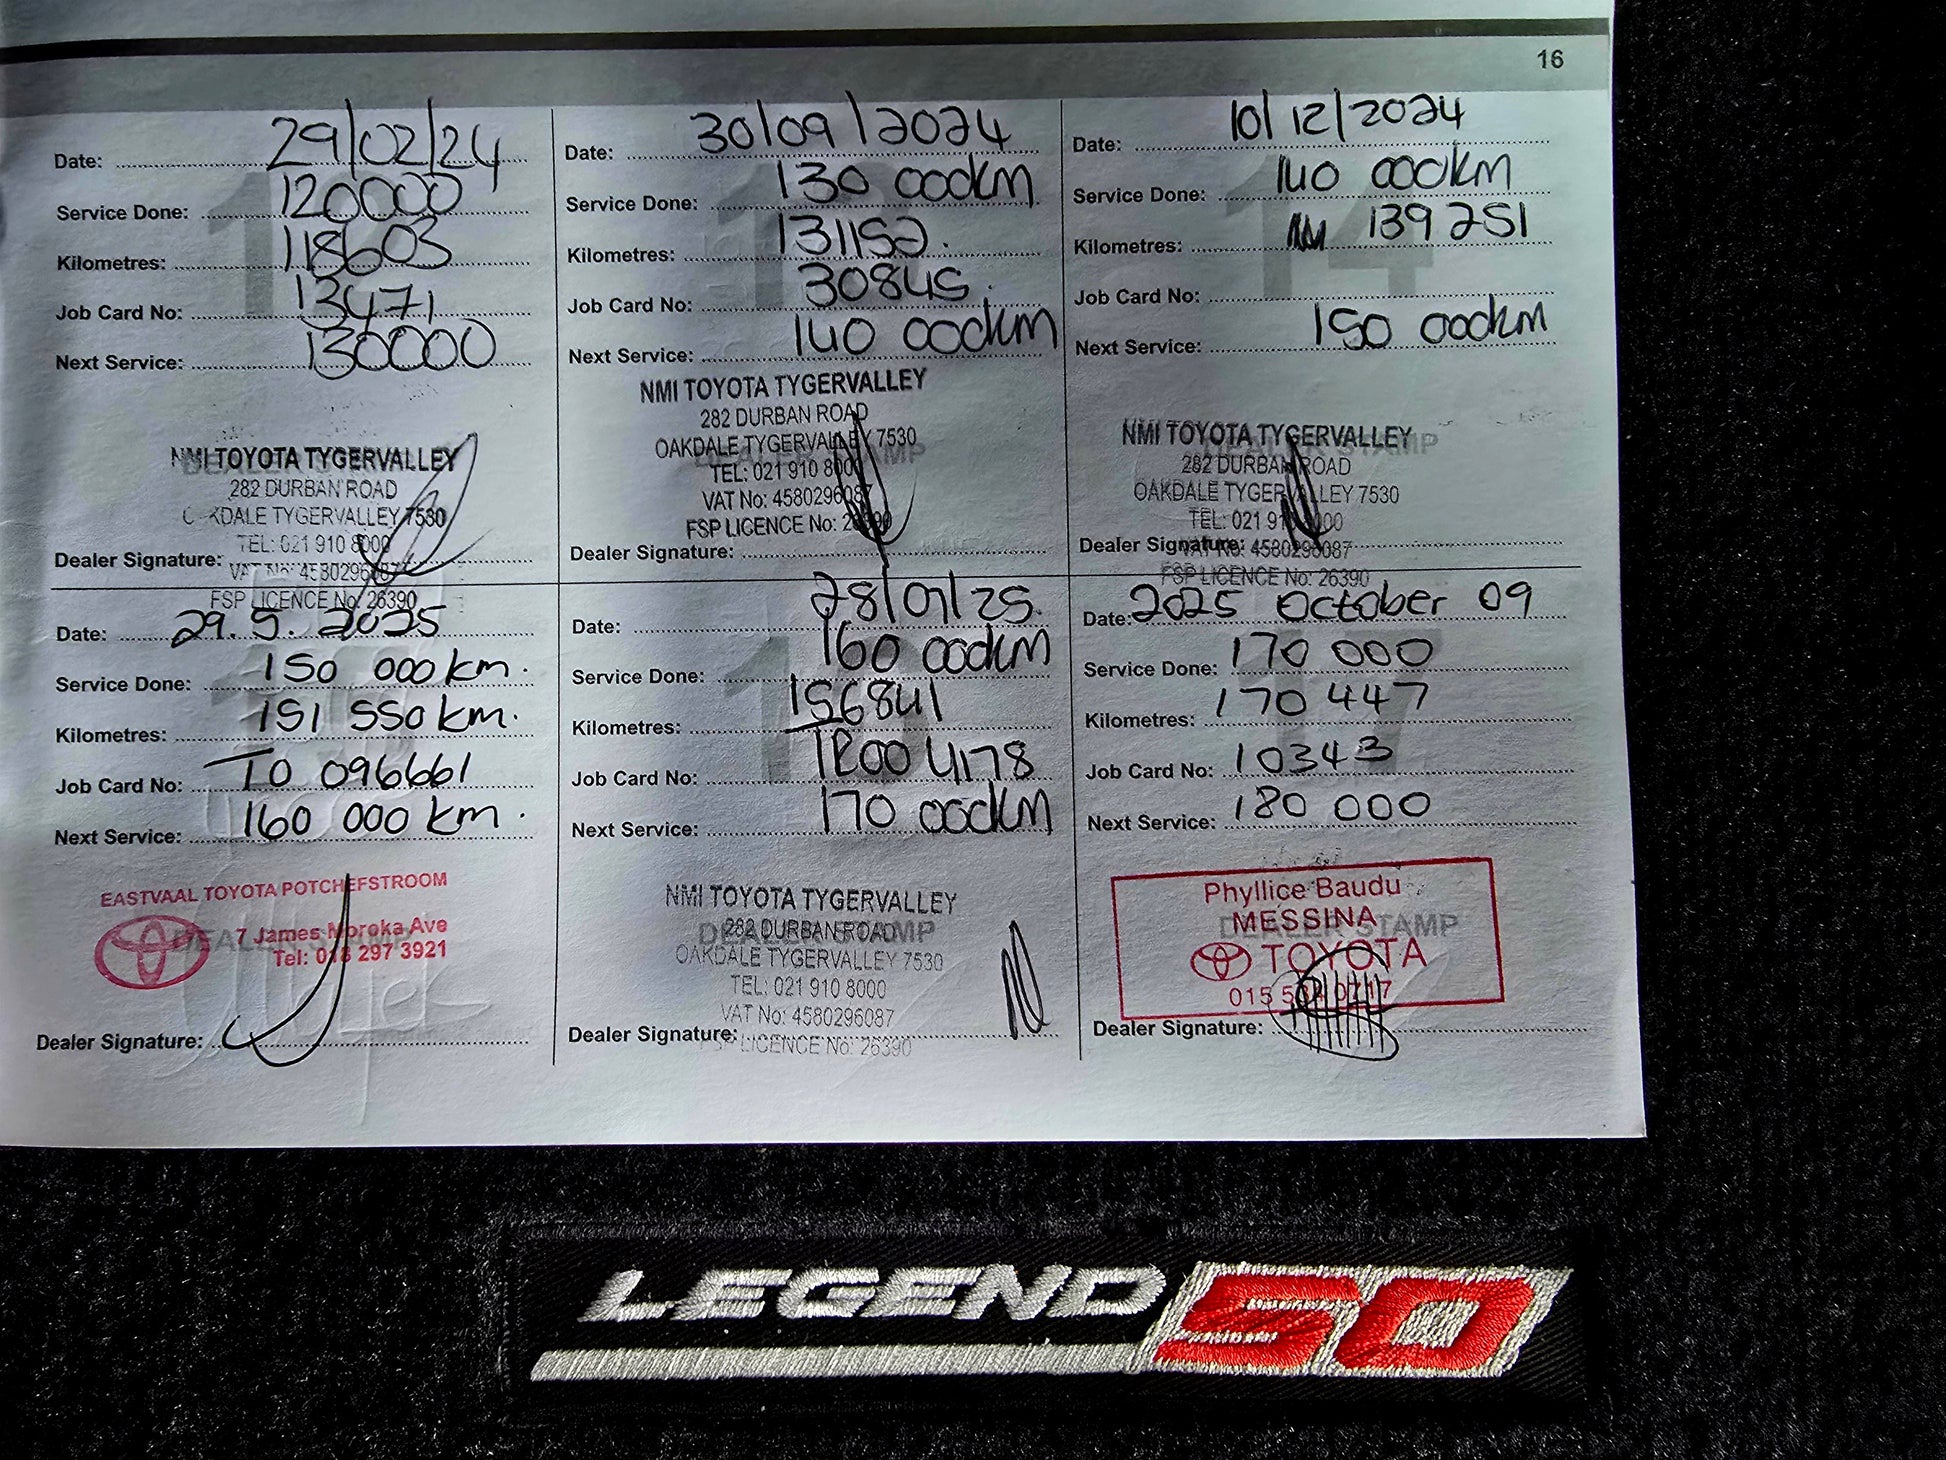 16
Date: 29/02/24
Service Done: 120000
Kilometres: 118603
Job Card No: 13471
Next Service: 130000
NMI TOYOTA TYGERVALLEY
282 DURBAN ROAD
OAKDALE TYGERVALLEY 7530
TEL: 021 910 8000
VAT No: 4580296087
Dealer Signature:
FSP LICENCE No: 26390
Date: 30/09/2024
Service Done: 130 000km
Kilometres: 131152.
Job Card No: 30845.
Next Service: 140 000km
NMI TOYOTA TYGERVALLEY
282 DURBAN ROAD
OAKDALE TYGERVALLEY 7530
TEL: 021 910 8000
VAT No: 4580296087
FSP LICENCE No: 26390
DEALER STAMP
Dealer Signature:
Date: 10/12/2024
Service Done: 140 000km
Kilometres: 139251
Job Card No:
Next Service: 150 000km
14
NMI TOYOTA TYGERVALLEY
DEALER STAMP
282 DURBAN ROAD
OAKDALE TYGERVALLEY 7530
TEL: 021 910 8000
Dealer Signature:
VAT No: 4580296087
FSP LICENCE No: 26390
Date: 29.5.2025
Service Done: 150 000km.
Kilometres: 151 550km.
Job Card No: TO 096661
Next Service: 160 000km.
EASTVAAL TOYOTA POTCHEFSTROOM
7 James Moroka Ave
Tel: 018 297 3921
Dealer Signature:
Date: 28/07/25.
Service Done: 160 000km
Kilometres: 156841
Job Card No: 4178
Next Service: 170 000km
NMI TOYOTA TYGERVALLEY
282 DURBAN ROAD
DEALER STAMP
OAKDALE TYGERVALLEY 7530
TEL: 021 910 8000
VAT No: 4580296087
Dealer Signature:
FSP LICENCE No: 26390
Date: 2025 October 09
Service Done: 170 000
Kilometres: 170 447
Job Card No: 10343
Next Service: 180 000
17
Phyllice Baudu
MESSINA
DEALER STAMP
TOYOTA
015
Dealer Signature:
LEGEND 50